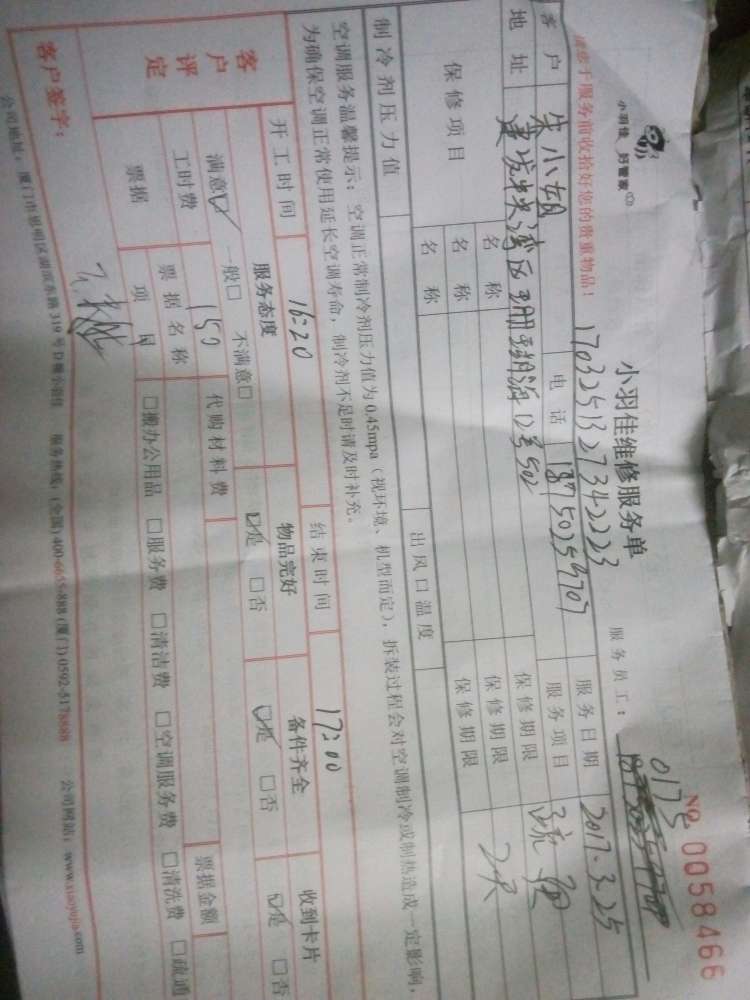 小羽佳 好管家
小羽佳维修服务单
No. 0058466
请您于服务前收拾好您的贵重物品！
1703251327342223
服务员工： 0175
客户 朱小姐 电话 18750259707 服务日期 2017.3.25
地址 建发中央湾区珊瑚海12号502 服务项目 疏通
保修项目
名称 保修期限
名称 保修期限 2天
名称 保修期限
制冷剂压力值 出风口温度
空调服务温馨提示：空调正常制冷剂压力值为0.45mpa（视环境、机型而定），拆装过程会对空调制冷或制热造成一定影响，
为确保空调正常使用延长空调寿命，制冷剂不足时请及时补充。
开工时间 16:20 结束时间 17:00
客户评定
服务态度 物品完好 备件齐全 收到卡片
满意☑ 一般□ 不满意□ ☑是 □否 ☑是 □否 ☑是 □否
工时费 150 代购材料费
票据 票据名称 票据金额
项目 □搬办公用品 □服务费 □清洁费 □空调服务费 □清洗费 □疏通
客户签字：
公司地址：厦门市思明区湖滨东路319号D幢小羽佳 服务热线：(全国) 400-6655-888 (厦门) 0592-5178888 公司网站：www.xiaoyujia.com